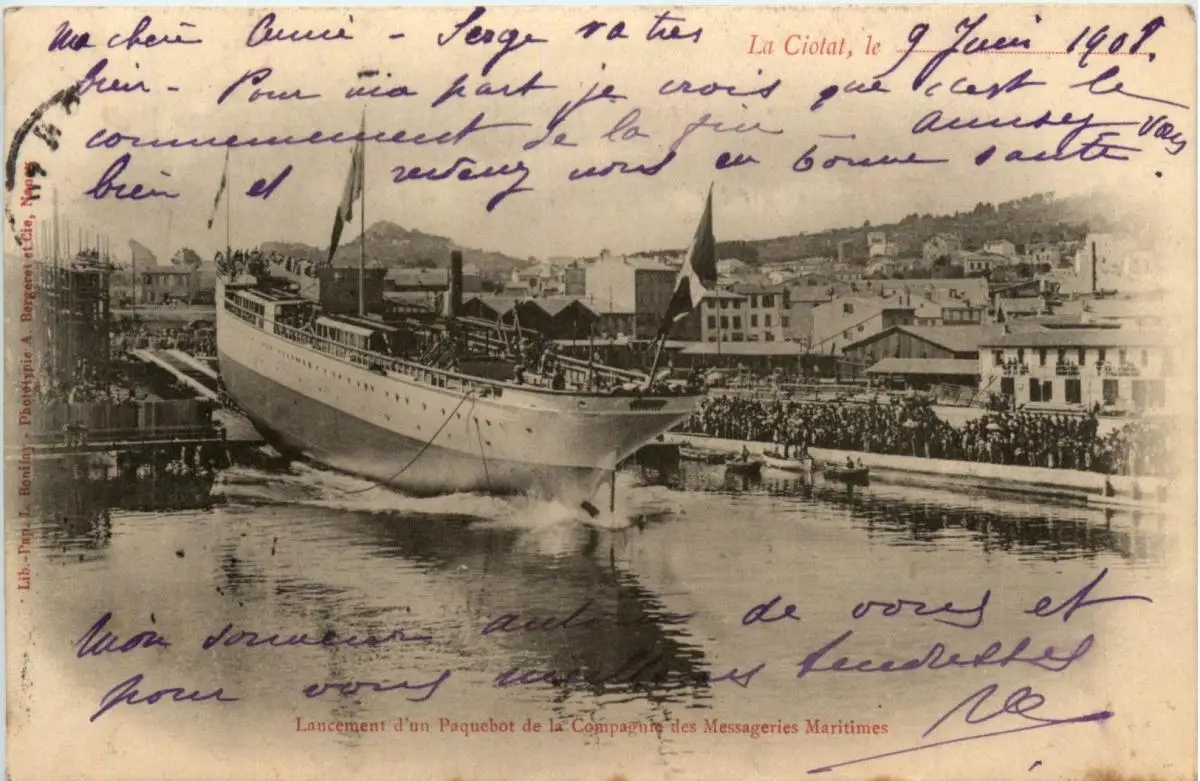 La Ciotat, le 9 Juin 1908.
Ma chère Aimée - Serge va très
bien - Pour ma part je crois que c'est le
commencement de la fin - Amusez vous
bien et revenez nous en bonne santé.
Lib.-Pap. L. Bonifay - Phototypie A. Bergeret et Cie, Nancy
Mon souvenir autour de vous et
pour vous meilleures tendresses
Lancement d'un Paquebot de la Compagnie des Messageries Maritimes